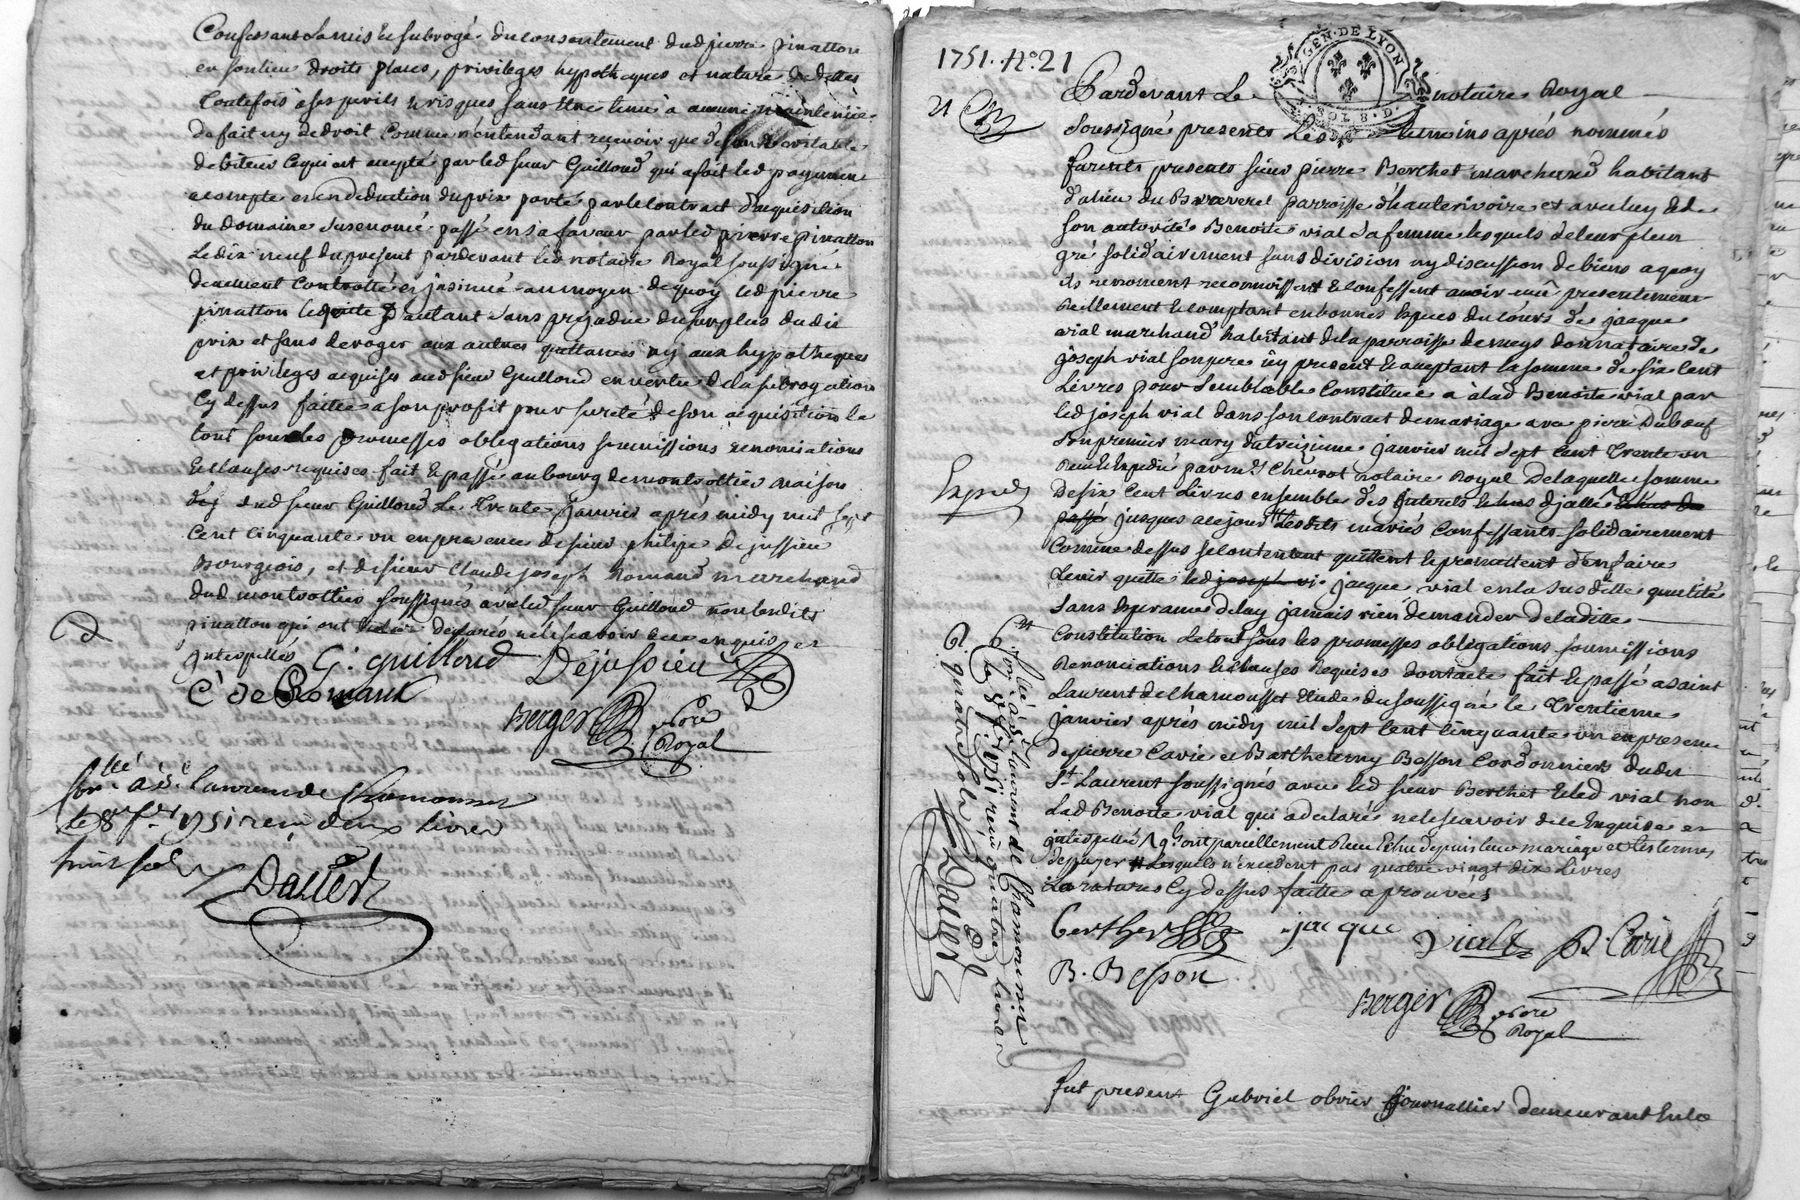 Confessant l'a mis et subrogé du consentement dud pierre pinatton
en son lieu droits places, privileges hypotheques et nature de dettes
toutefois a ses perils et risques sans etre tenu a aucune maintenüe
de fait ny de droit comme n'entendant recevoir que de son veritable
debiteur ce qui est accepté par led sieur Guilloud qui a fait led payement
a compte et en deduction du prix porté par le contract d'acquisition
du domaine susenoncé passé en sa faveur par led pierre pinatton
le dix neuf du présent pardevant led notaire Royal soussigné
deuement controllé et jnsinué au moyen de quoy led pierre
pinatton le quitte d'autant sans prejudice du surplus dudit
prix et sans deroger aux autres quittances ny aux hypotheques
et privilèges acquises aud sieur Guilloud en vertu de la subrogation
cy dessus faitte a son profit pour sureté de son acquisition le
tout sous les promesses obligations soumissions renonciations
et clauses requises fait et passé au bourg de montrottier maison
dud sieur Guilloud le trente janvier après midy mil sept
cent cinquante un en presence de sieur philipe dejussieu
Bourgeois, et de sieur Claude joseph Romand marchand
dud montrottier soussignés avec led sieur Guilloud non lesdits
pinatton qui ont déclarés ne le scavoir de ce enquis et
jnterpellés
G. guilloud Dejussieu
C j de Romand
Berger nore Royal
Con.llé a st. laurent de Chamousset
le 8 f.er 1751 reçu deux livres
huit sols
Dalier
1751. N.o 21
GEN. DE LYON
SOLS. D.
21
Pardevant Le notaire Royal
soussigné presents Les temoins après nommés
furents presents sieur pierre Berthet marchand habitant
d'alieu du Baraverel parroisse d'hauterivoire et avec luy et de
son autorité Benoite vial sa femme lesquels de leur plein
gré solidairement sans division ny discussion de biens a quoy
ils renoncent reconnoissent et confessent avoir eû presentement
reellement et comptant en bonnes especes du cours de jacque
vial marchand habitant de la parroisse de meys donnataire de
joseph vial son pere icy present et acceptant la somme de six cent
livres pour semblable constituée a à lad Benoite vial par
led joseph vial dans son contract de mariage avec pierre Duboeuf
son premier mary du treizieme janvier mil sept cent trente un
receu et expedié par me Chevrot notaire Royal de laquelle somme
de six cent livres ensemble des jnterets
jusques a ce jour lesdits mariés confessants solidairement
comme dessus se contentent quittent et promettent d'en faire
tenir quitte led joseph vi jacque vial en la susditte qualité
sans esperance de luy jamais rien demander de laditte
constitution le tout sous les promesses obligations soumissions
Renonciations et clauses Requises dont acte fait et passé a saint
Laurent de chamousset etude du soussigné le trentieme
janvier après midy mil sept cent cinquante un en presence
de pierre Carie et Barthelemy Besson Cordonniers dudit
St Laurent soussignés avec led sieur Berthet et led vial non
lad Benoite vial qui a declarés ne le scavoir de ce enquise et
jnterpellé
lesquels n'excedent pas quatre vingt dix livres
la ratures cy dessus faitte aprouvées
Expedié
Con.llé a st. laurent de Chamousset
le 8 f.er 1751 reçu quatre livres
quatre sols
Dalier
berthet jacque vialt P. Carie
B. Besson
Berger nore Royal
fut present Gabriel obrier journallier demeurant en la